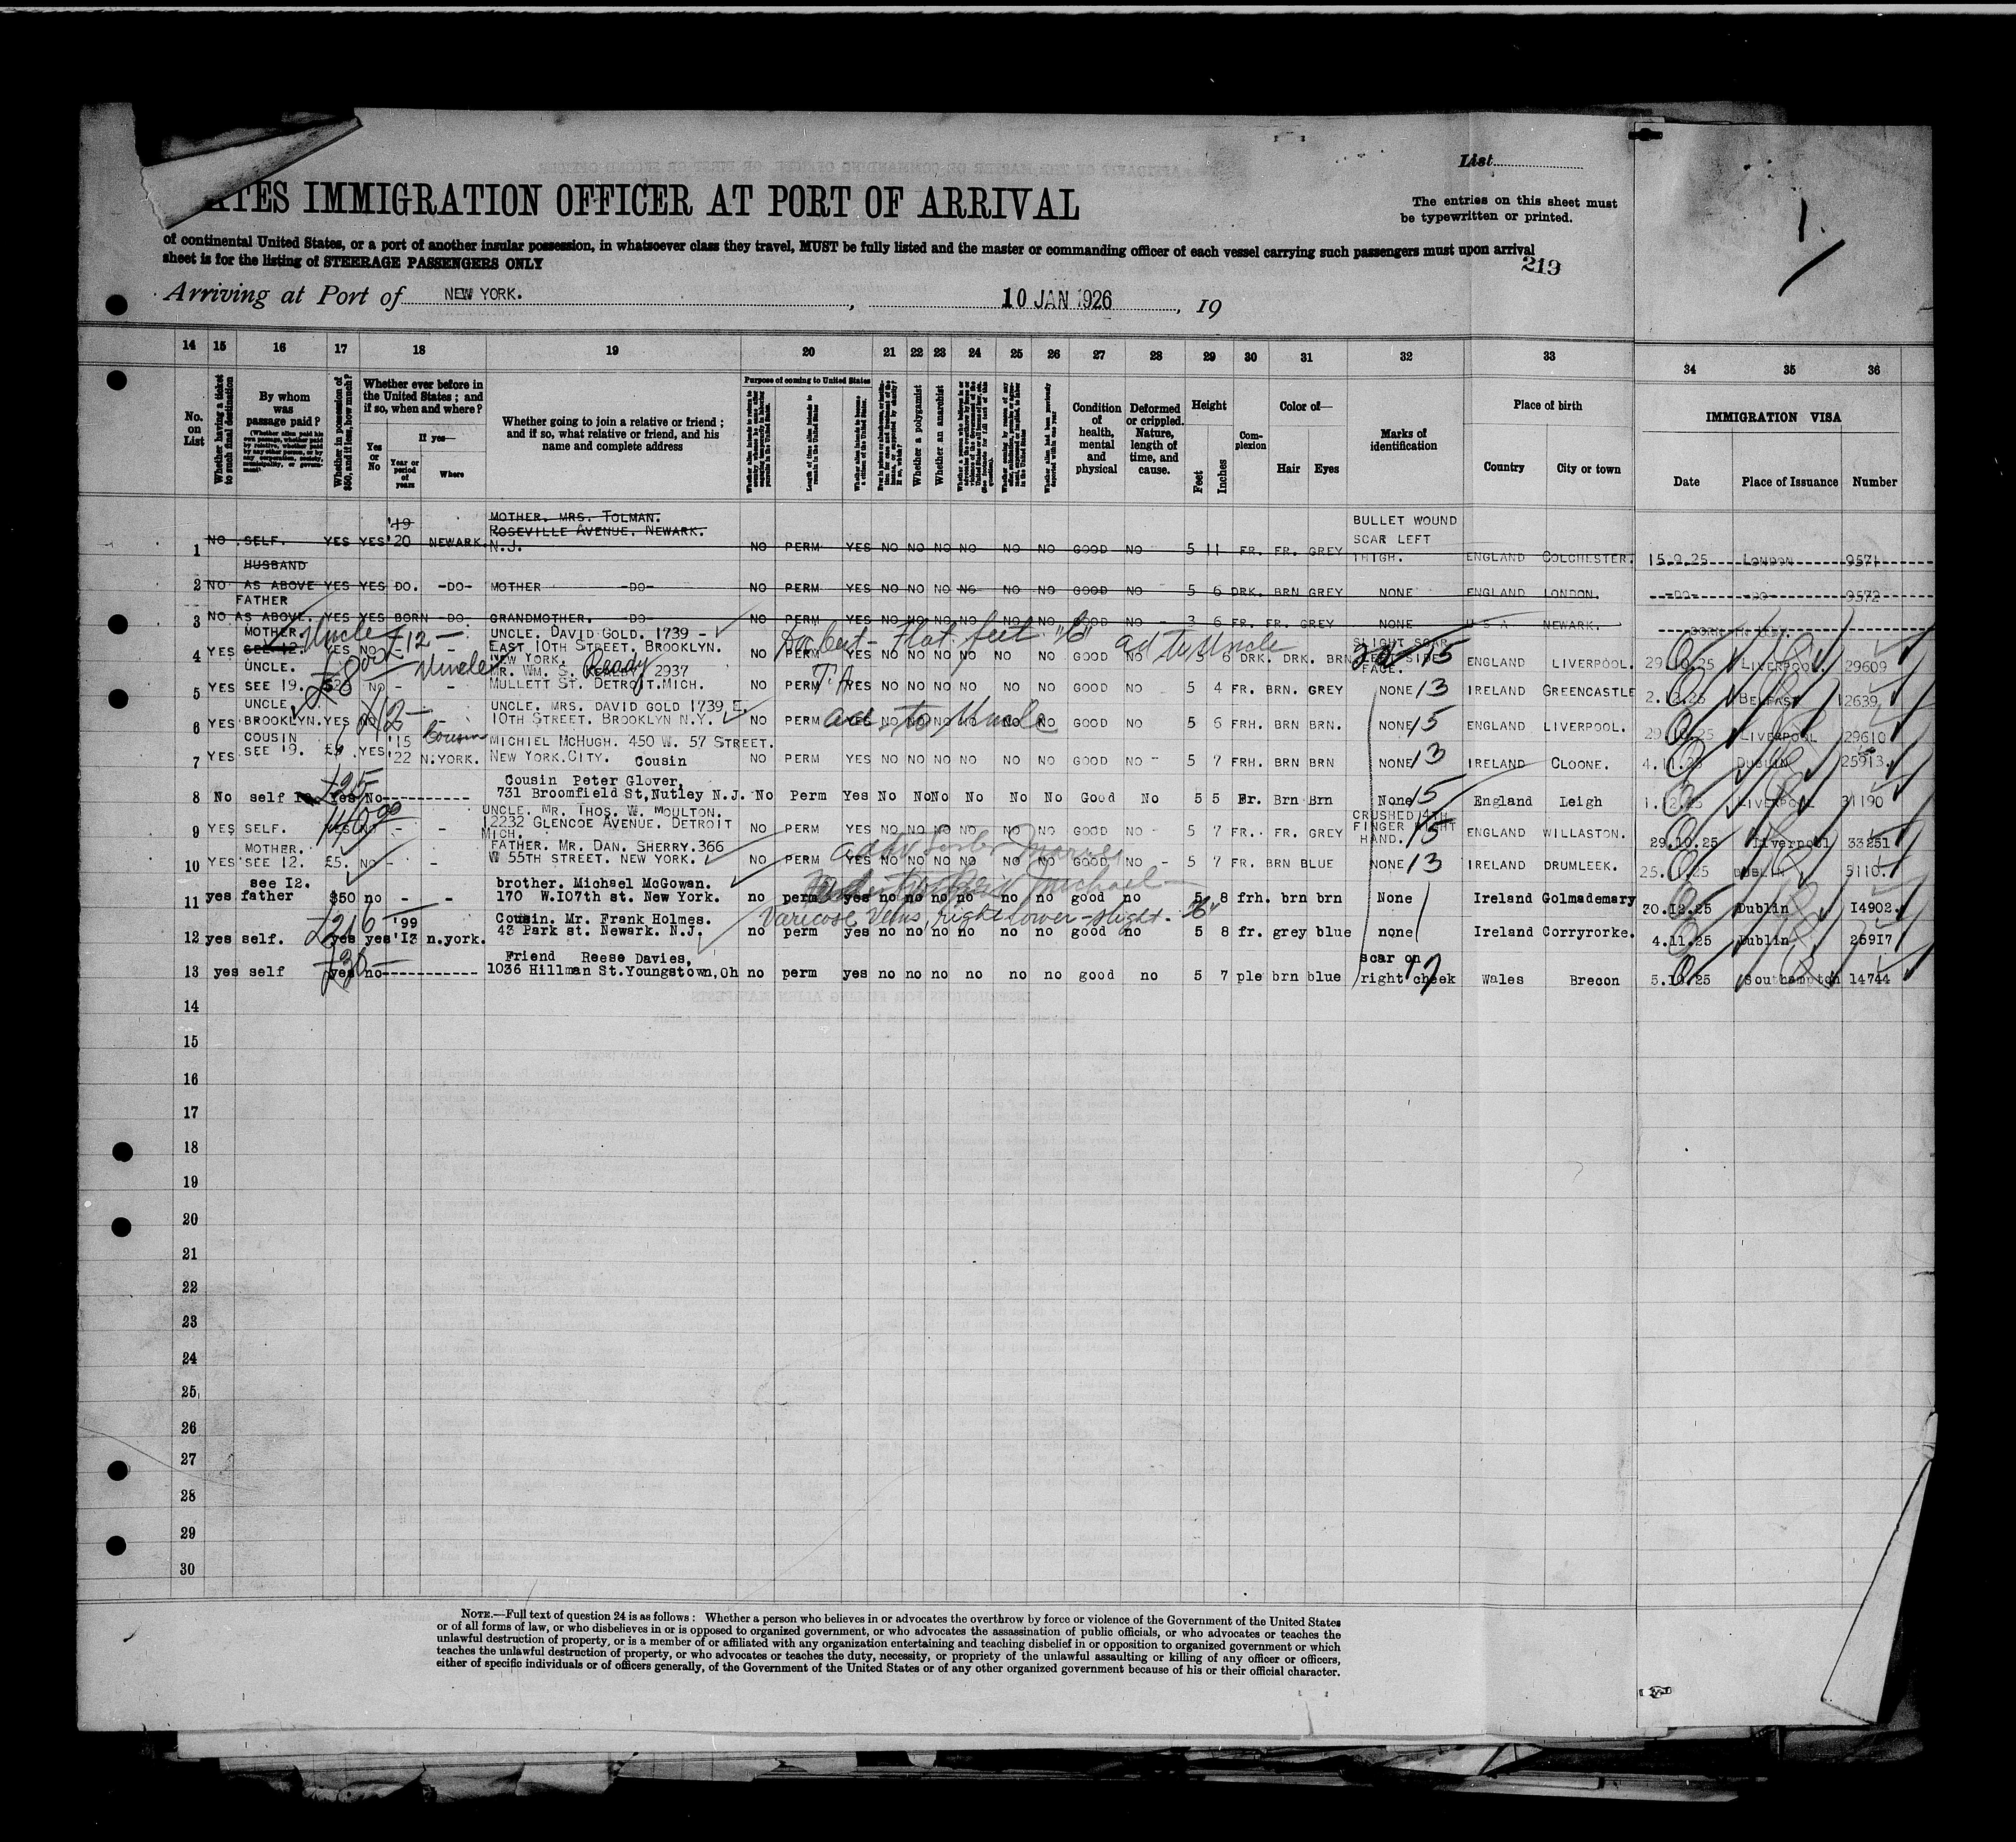 List
ATES IMMIGRATION OFFICER AT PORT OF ARRIVAL
The entries on this sheet must
be typewritten or printed.
1.
of continental United States, or a port of another insular possession, in whatsoever class they travel, MUST be fully listed and the master or commanding officer of each vessel carrying such passengers must upon arrival
sheet is for the listing of STEERAGE PASSENGERS ONLY
213
Arriving at Port of NEW YORK. , 10 JAN 1926 , 19
14 15 16 17 18 19 20 21 22 23 24 25 26 27 28 29 30 31 32 33 34 35 36
No. on List
Whether having a ticket to such final destination
By whom was passage paid?
(Whether alien paid his own passage, whether paid by relative, whether paid by any other person, or by any corporation, society, municipality, or government)
Whether in possession of $50, and if less, how much?
Whether ever before in the United States; and if so, when and where?
Yes or No
If yes—
Year or period of years
Where
Whether going to join a relative or friend; and if so, what relative or friend, and his name and complete address
Purpose of coming to United States
Length of time alien intends to remain in the United States
Whether alien intends to become a citizen of the United States
Whether a polygamist
Whether an anarchist
Condition of health, mental and physical
Deformed or crippled. Nature, length of time, and cause.
Height
Feet
Inches
Complexion
Color of—
Hair
Eyes
Marks of identification
Place of birth
Country
City or town
IMMIGRATION VISA
Date
Place of Issuance
Number
1 NO SELF. YES YES '19 '20 NEWARK. MOTHER. MRS. TOLMAN. ROSEVILLE AVENUE. NEWARK. N.J. NO PERM YES NO NO NO NO NO NO GOOD NO 5 11 FR. FR. GREY BULLET WOUND SCAR LEFT THIGH. ENGLAND COLCHESTER. 15.9.25 LONDON 9571
2 NO HUSBAND AS ABOVE YES YES DO. -DO- MOTHER -DO- NO PERM YES NO NO NO NO NO NO GOOD NO 5 6 DRK. BRN GREY NONE ENGLAND LONDON. -DO- -DO- 9572
3 NO FATHER AS ABOVE. YES YES BORN -DO- GRANDMOTHER. -DO- NO PERM YES NO NO NO NO NO NO GOOD NO 3 6 FR. FR. GREY NONE U S A NEWARK. BORN IN U.S.A.
4 YES MOTHER. SEE 12. Uncle £12— YES NO - - UNCLE. DAVID GOLD. 1739 - EAST 10TH STREET. BROOKLYN. NEW YORK. NO PERM YES NO NO NO NO NO NO GOOD NO 5 6 DRK. DRK. BRN SLIGHT SCAR LEFT SIDE FACE. 15 ENGLAND LIVERPOOL. 29.10.25 LIVERPOOL. 29609
Flat feet "C" ad to Uncle
5 YES UNCLE. SEE 19. NO - - Uncle MR. WM. S. Ready 2937 MULLETT ST. DETROIT.MICH. NO PERM YES NO NO NO NO NO NO GOOD NO 5 4 FR. BRN. GREY NONE 13 IRELAND GREENCASTLE 2.12.25 BELFAST 12639
6 YES UNCLE BROOKLYN. YES NO UNCLE. MRS. DAVID GOLD 1739 E. 10TH STREET. BROOKLYN N.Y. NO PERM YES NO NO NO NO NO NO GOOD NO 5 6 FRH. BRN BRN. NONE 15 ENGLAND LIVERPOOL. 29.10.25 LIVERPOOL 29610
ad to Uncle
7 YES COUSIN SEE 19. YES '15 '22 N.YORK. Cousin MICHIEL MCHUGH. 450 W. 57 STREET. NEW YORK.CITY. Cousin NO PERM YES NO NO NO NO NO NO GOOD NO - 5 7 FRH. BRN BRN NONE 13 IRELAND CLOONE. 4.11.25 DUBLIN 25913.
8 No self £25 Yes No ---------- Cousin Peter Glover, 731 Broomfield St,Nutley N.J. No Perm Yes No No No No No No Good No 5 5 Fr. Brn Brn None 15 England Leigh 1.12.25 LIVERPOOL 31190
9 YES SELF. YES NO - - UNCLE. MR. THOS. W. MOULTON. 12232 GLENCOE AVENUE. DETROIT MICH. NO PERM YES NO NO NO NO NO NO GOOD NO - 5 7 FR. FR. GREY CRUSHED 4TH FINGER RIGHT HAND. 15 ENGLAND WILLASTON. 29.10.25 Liverpool 33251
10 YES MOTHER. SEE 12. £5. NO - - FATHER. MR. DAN. SHERRY.366 W 55TH STREET. NEW YORK. NO PERM YES NO NO NO NO NO NO GOOD NO - 5 7 FR. BRN BLUE NONE 13 IRELAND DRUMLEEK. 25.11.25 DUBLIN 5110.
11 yes see I2. father $50 no - - brother. Michael McGowan. 170 W.I07th st. New York. no perm yes no no no no no no good no 5 8 frh. brn brn None Ireland Golmademary 30.12.25 Dublin I4902.
Varicose Veins, Right lower - slight.
12 yes self. £216 yes yes '99 'I3 n.york. Cousin. Mr. Frank Holmes. 43 Park st. Newark. N.J. no perm yes no no no no no no good no 5 8 fr. grey blue none Ireland Corryrorke. 4.11.25 Dublin 259I7
13 yes self £30— yes no ---------- Friend Reese Davies, 1036 Hillman St.Youngstown,Oh no perm yes no no no no no no good no 5 7 ple brn blue scar on right cheek 17 Wales Brecon 5.10.25 Southampton 14744
14
15
16
17
18
19
20
21
22
23
24
25
26
27
28
29
30
NOTE.—Full text of question 24 is as follows: Whether a person who believes in or advocates the overthrow by force or violence of the Government of the United States
or of all forms of law, or who disbelieves in or is opposed to organized government, or who advocates the assassination of public officials, or who advocates or teaches the
unlawful destruction of property, or is a member of or affiliated with any organization entertaining and teaching disbelief in or opposition to organized government or which
teaches the unlawful destruction of property, or who advocates or teaches the duty, necessity, or propriety of the unlawful assaulting or killing of any officer or officers,
either of specific individuals or of officers generally, of the Government of the United States or of any other organized government because of his or their official character.